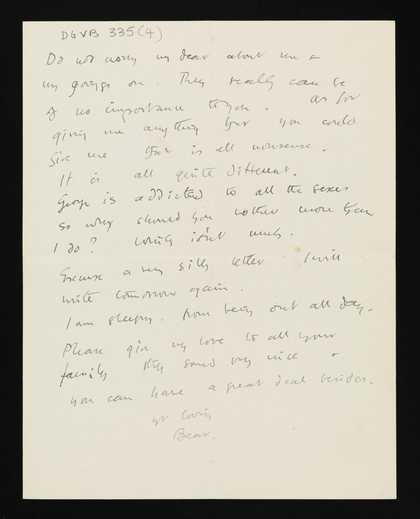 DGVB 335(4)
Do not worry my dear about me &
my goings on. They really can be
of no importance to you. As for
giving me anything but you could
give me that is all nonsense.
It is all quite different.
George is addicted to all the sexes
so why should you bother more than
I do? Which isn't much.
Excuse a very silly letter I will
write tomorrow again.
I am sleepy from being out all day.
Please give my love to all your
family they sound very nice &
you can have a great deal besides.
yr loving
Bear.